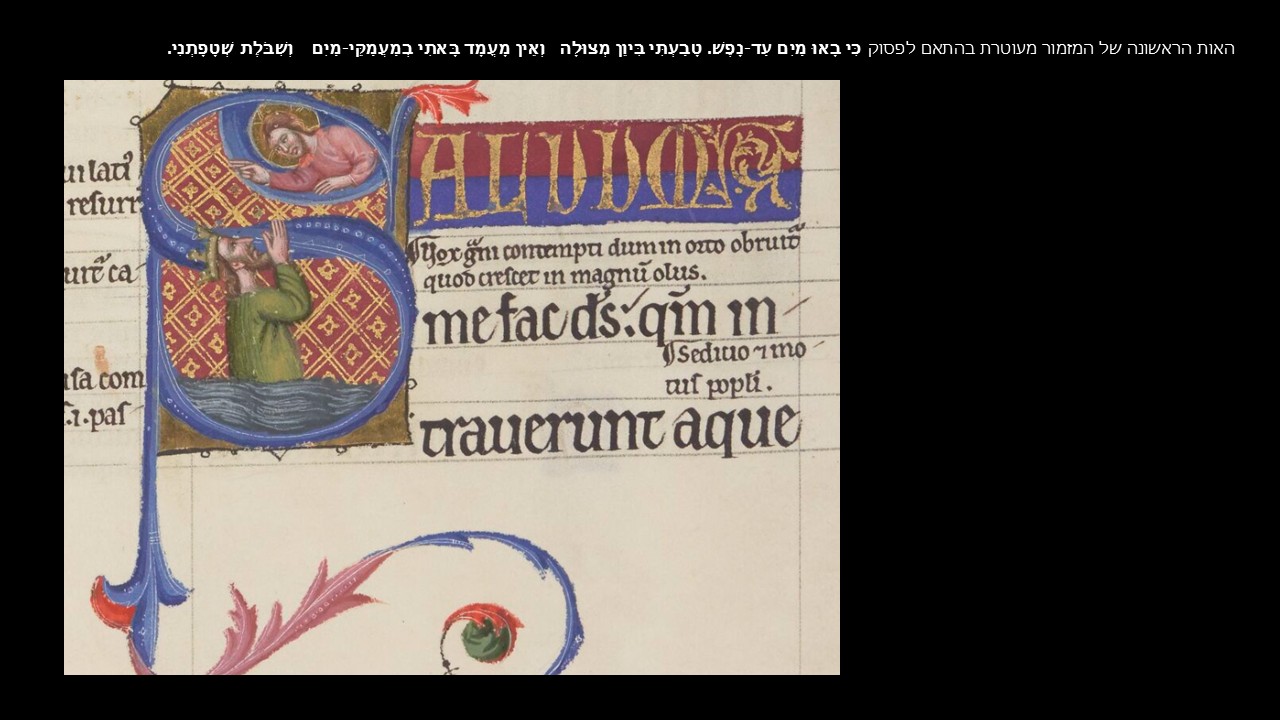 האות הראשונה של המזמור מעוטרת בהתאם לפסוק כִּי בָאוּ מַיִם עַד-נָפֶשׁ. טָבַעְתִּי בִּיוֵן מְצוּלָה וְאֵין מָעֳמָד בָּאתִי בְמַעֲמַקֵּי-מַיִם וְשִׁבֹּלֶת שְׁטָפָתְנִי.
SALVUM
resurr
contempti dum in orto obruit
quod crescet in magnū olus.
me fac ds̄: qm̄ in
Seditio
tus popli.
trauerunt aque